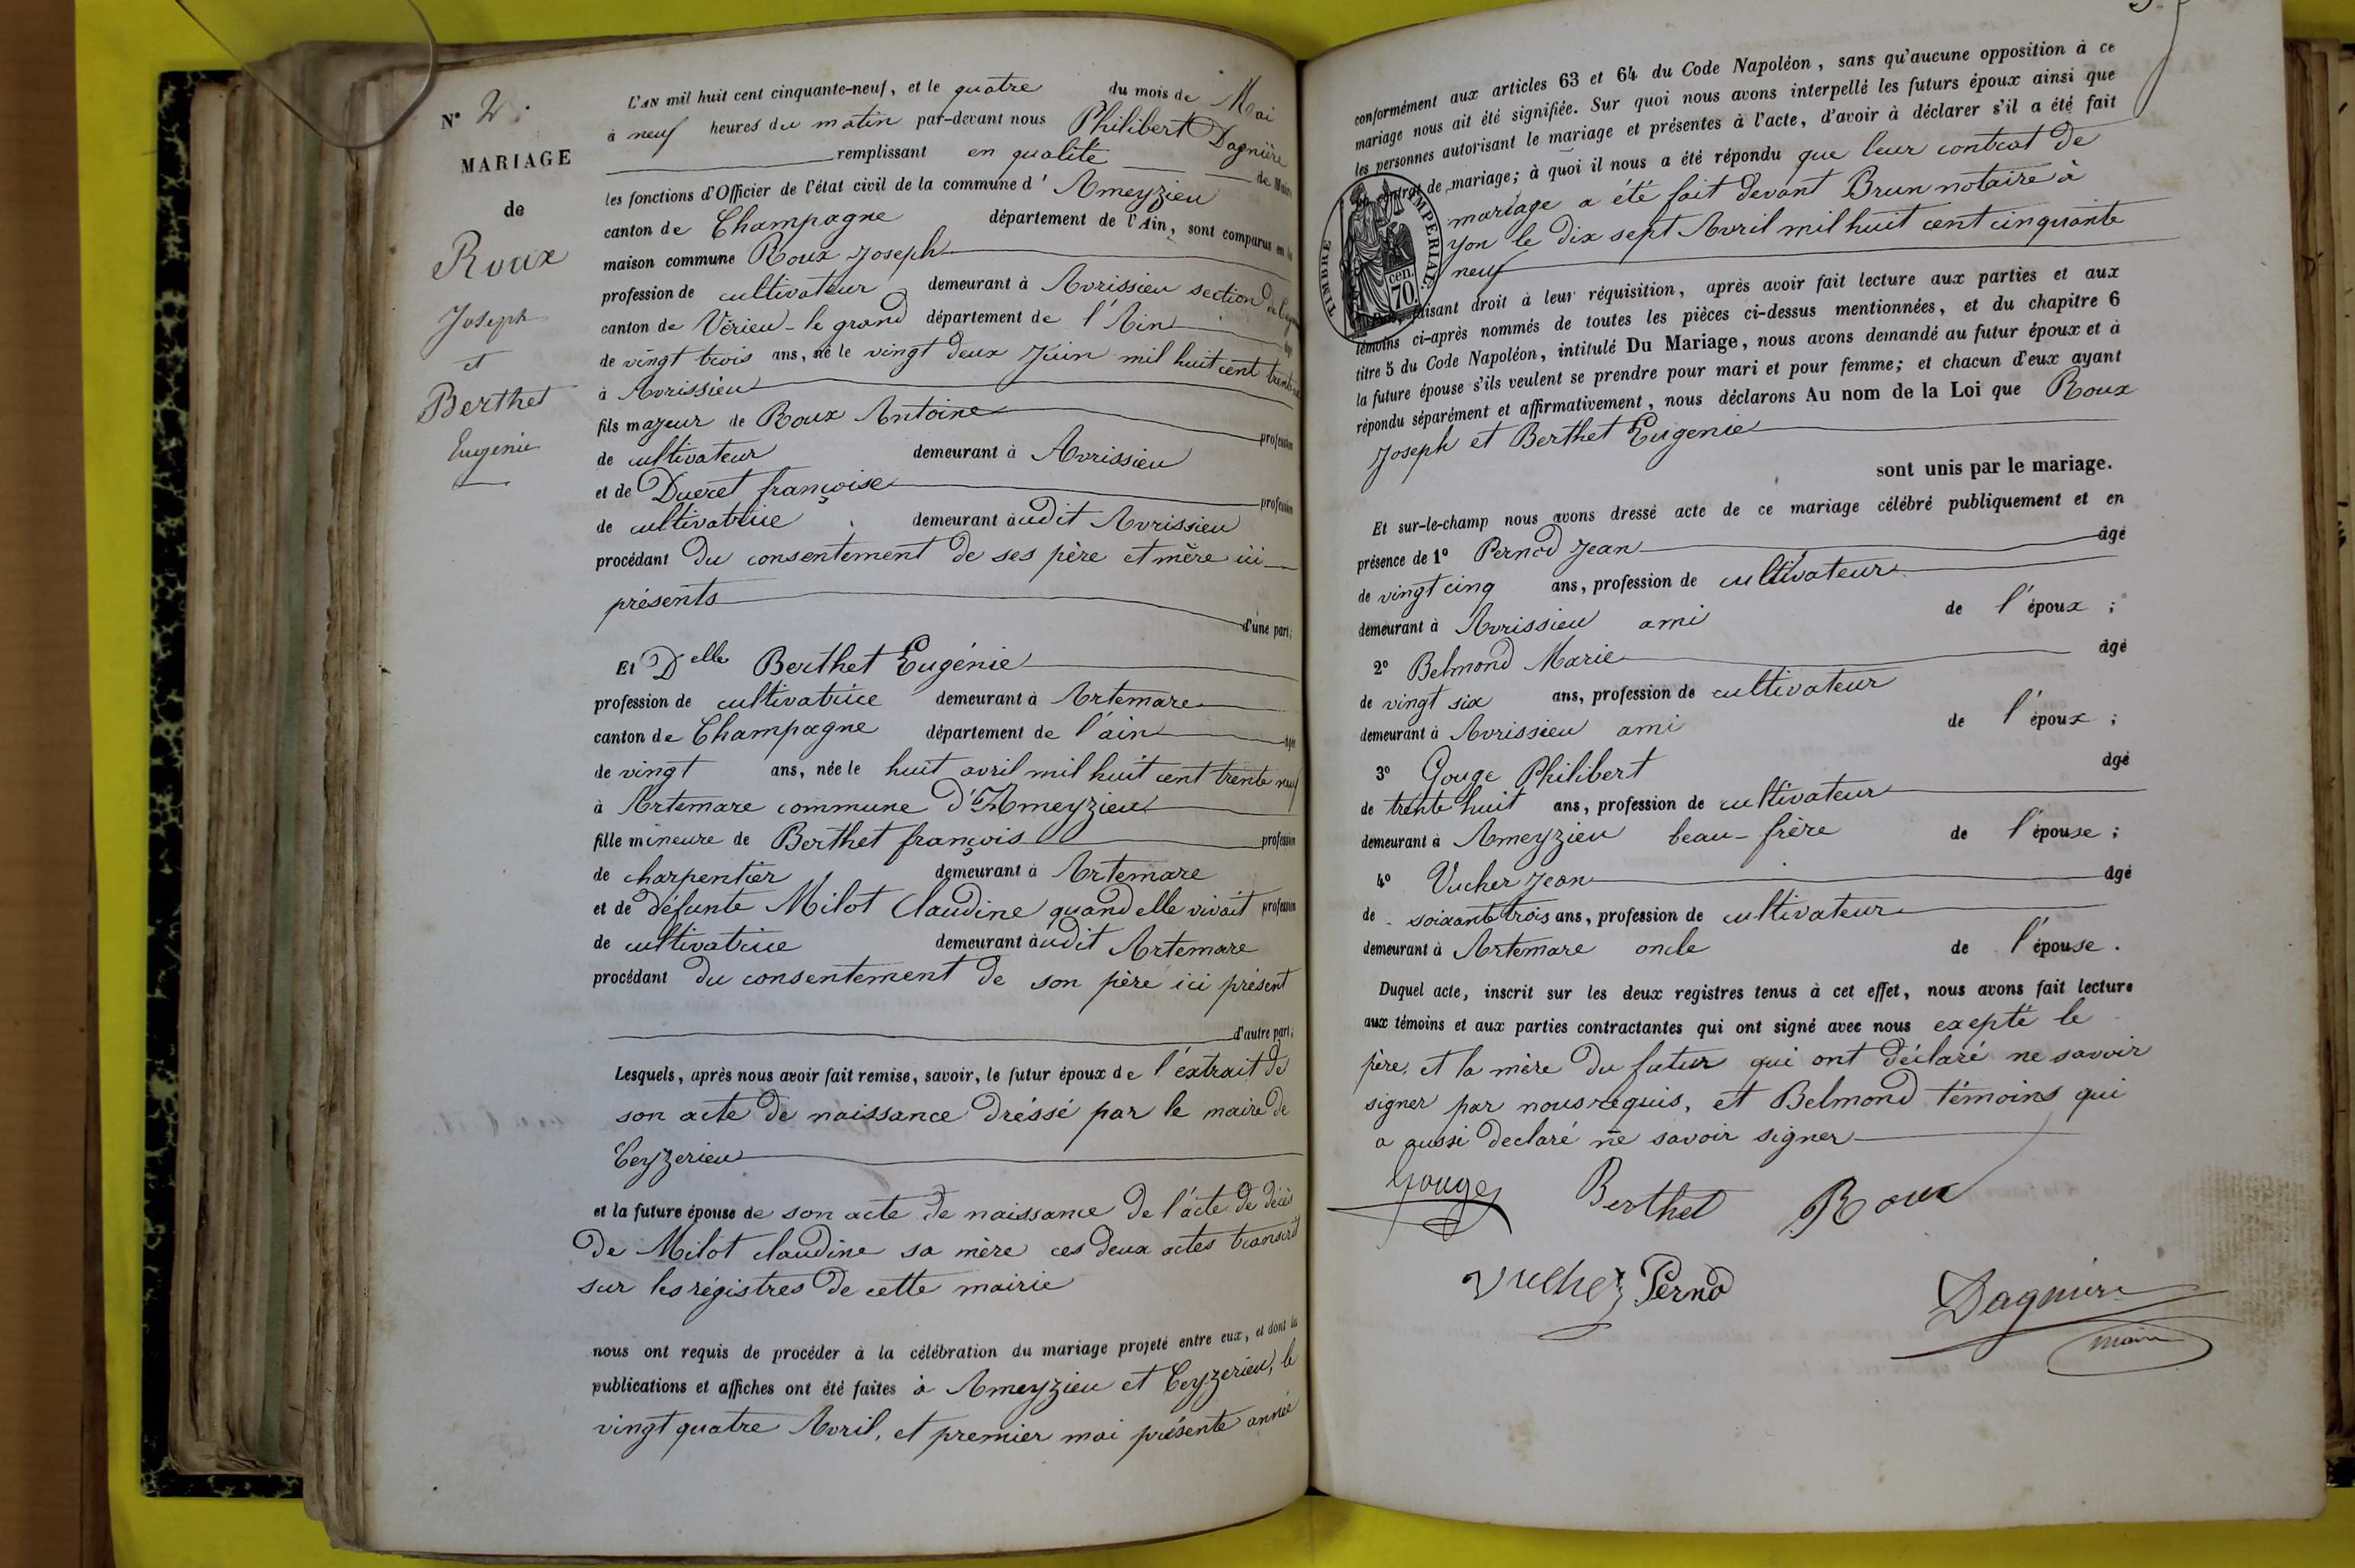 N° 2.
MARIAGE
de
Roux
Joseph
et
Berthet
Eugénie
L'AN mil huit cent cinquante-neuf, et le quatre du mois de Mai
à neuf heures du matin par-devant nous Philibert Dagnière
remplissant en qualité de Maire
les fonctions d'Officier de l'état civil de la commune d'Ameyzieu
canton de Champagne département de l'Ain, sont comparus en la
maison commune Roux Joseph
profession de cultivateur demeurant à Avrissieu section de
canton de Vérieu-le grand département de l'Ain
de vingt trois ans, né le vingt deux Juin mil huit cent
à Avrissieu
fils majeur de Roux Antoine profession
de cultivateur demeurant à Avrissieu
et de Ducret françoise profession
de cultivatrice demeurant audit Avrissieu
procédant du consentement de ses père et mère ici
présents
d'une part;
Et Delle Berthet Eugénie
profession de cultivatrice demeurant à Artemare
canton de Champagne département de l'ain âgée
de vingt ans, née le huit avril mil huit cent trente neuf
à Artemare commune d'Ameyzieu
fille mineure de Berthet françois profession
de charpentier demeurant à Artemare
et de défunte Milot Claudine quand elle vivait profession
de cultivatrice demeurant audit Artemare
procédant du consentement de son père ici présent
d'autre part;
Lesquels, après nous avoir fait remise, savoir, le futur époux de l'extrait de
son acte de naissance dréssé par le maire de
Ceyzerieu
et la future épouse de son acte de naissance de l'acte de décès
de Milot claudine sa mère ces deux actes transcrit
sur les régistres de cette mairie
nous ont requis de procéder à la célébration du mariage projeté entre eux, et dont la
publications et affiches ont été faites à Ameyzieu et Ceyzerieu, le
vingt quatre Avril, et premier mai présente année
conformément aux articles 63 et 64 du Code Napoléon, sans qu'aucune opposition à ce
mariage nous ait été signifiée. Sur quoi nous avons interpellé les futurs époux ainsi que
les personnes autorisant le mariage et présentes à l'acte, d'avoir à déclarer s'il a été fait
contrat de mariage; à quoi il nous a été répondu que leur contrat de
mariage a été fait devant Brun notaire à
yon le dix sept Avril mil huit cent cinquante
neuf
TIMBRE IMPÉRIAL
70 cen.
faisant droit à leur réquisition, après avoir fait lecture aux parties et aux
témoins ci-après nommés de toutes les pièces ci-dessus mentionnées, et du chapitre 6
titre 5 du Code Napoléon, intitulé Du Mariage, nous avons demandé au futur époux et à
la future épouse s'ils veulent se prendre pour mari et pour femme; et chacun d'eux ayant
répondu séparément et affirmativement, nous déclarons Au nom de la Loi que Roux
Joseph et Berthet Eugenie
sont unis par le mariage.
Et sur-le-champ nous avons dressé acte de ce mariage célébré publiquement et en
présence de 1° Pernod Jean âgé
de vingt cinq ans, profession de cultivateur
demeurant à Avrissieu ami de l'époux;
2° Belmond Marie âgé
de vingt six ans, profession de cultivateur
demeurant à Avrissieu ami de l'époux;
3° Gouge Philibert âgé
de trente huit ans, profession de cultivateur
demeurant à Ameyzieu beau-frère de l'épouse;
4° Vucher Jean âgé
de soixante trois ans, profession de cultivateur
demeurant à Artemare oncle de l'épouse.
Duquel acte, inscrit sur les deux registres tenus à cet effet, nous avons fait lecture
aux témoins et aux parties contractantes qui ont signé avec nous exepté le
père, et la mère du futur qui ont déclaré ne savoir
signer par nous requis, et Belmond témoins qui
a aussi declaré ne savoir signer
Gouge Berthet Roux
Vucher Pernod Dagnière
maire